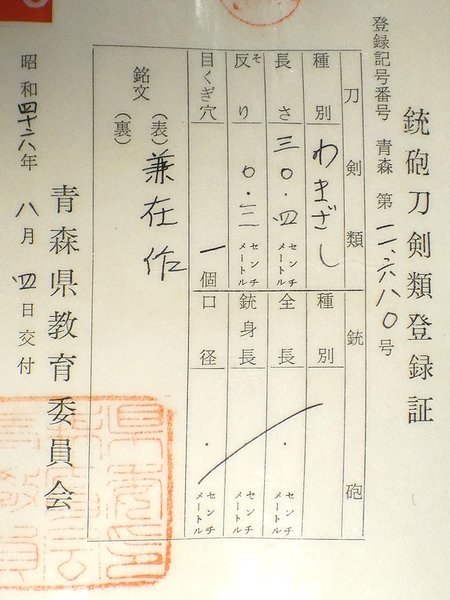 銃砲刀剣類登録証
登録記号番号 青森 第 一一、六八〇 号
刀剣類 銃砲
種別 わきざし 種別
長さ 三〇・四 センチメートル 全長 ・ センチメートル
反り そ 〇・二 センチメートル 銃身長 ・ センチメートル
目くぎ穴 一 個 口径 ・ センチメートル
銘文 (表) 兼在作
(裏)
青森県教育委員会
昭和四十六年 八月 四日交付